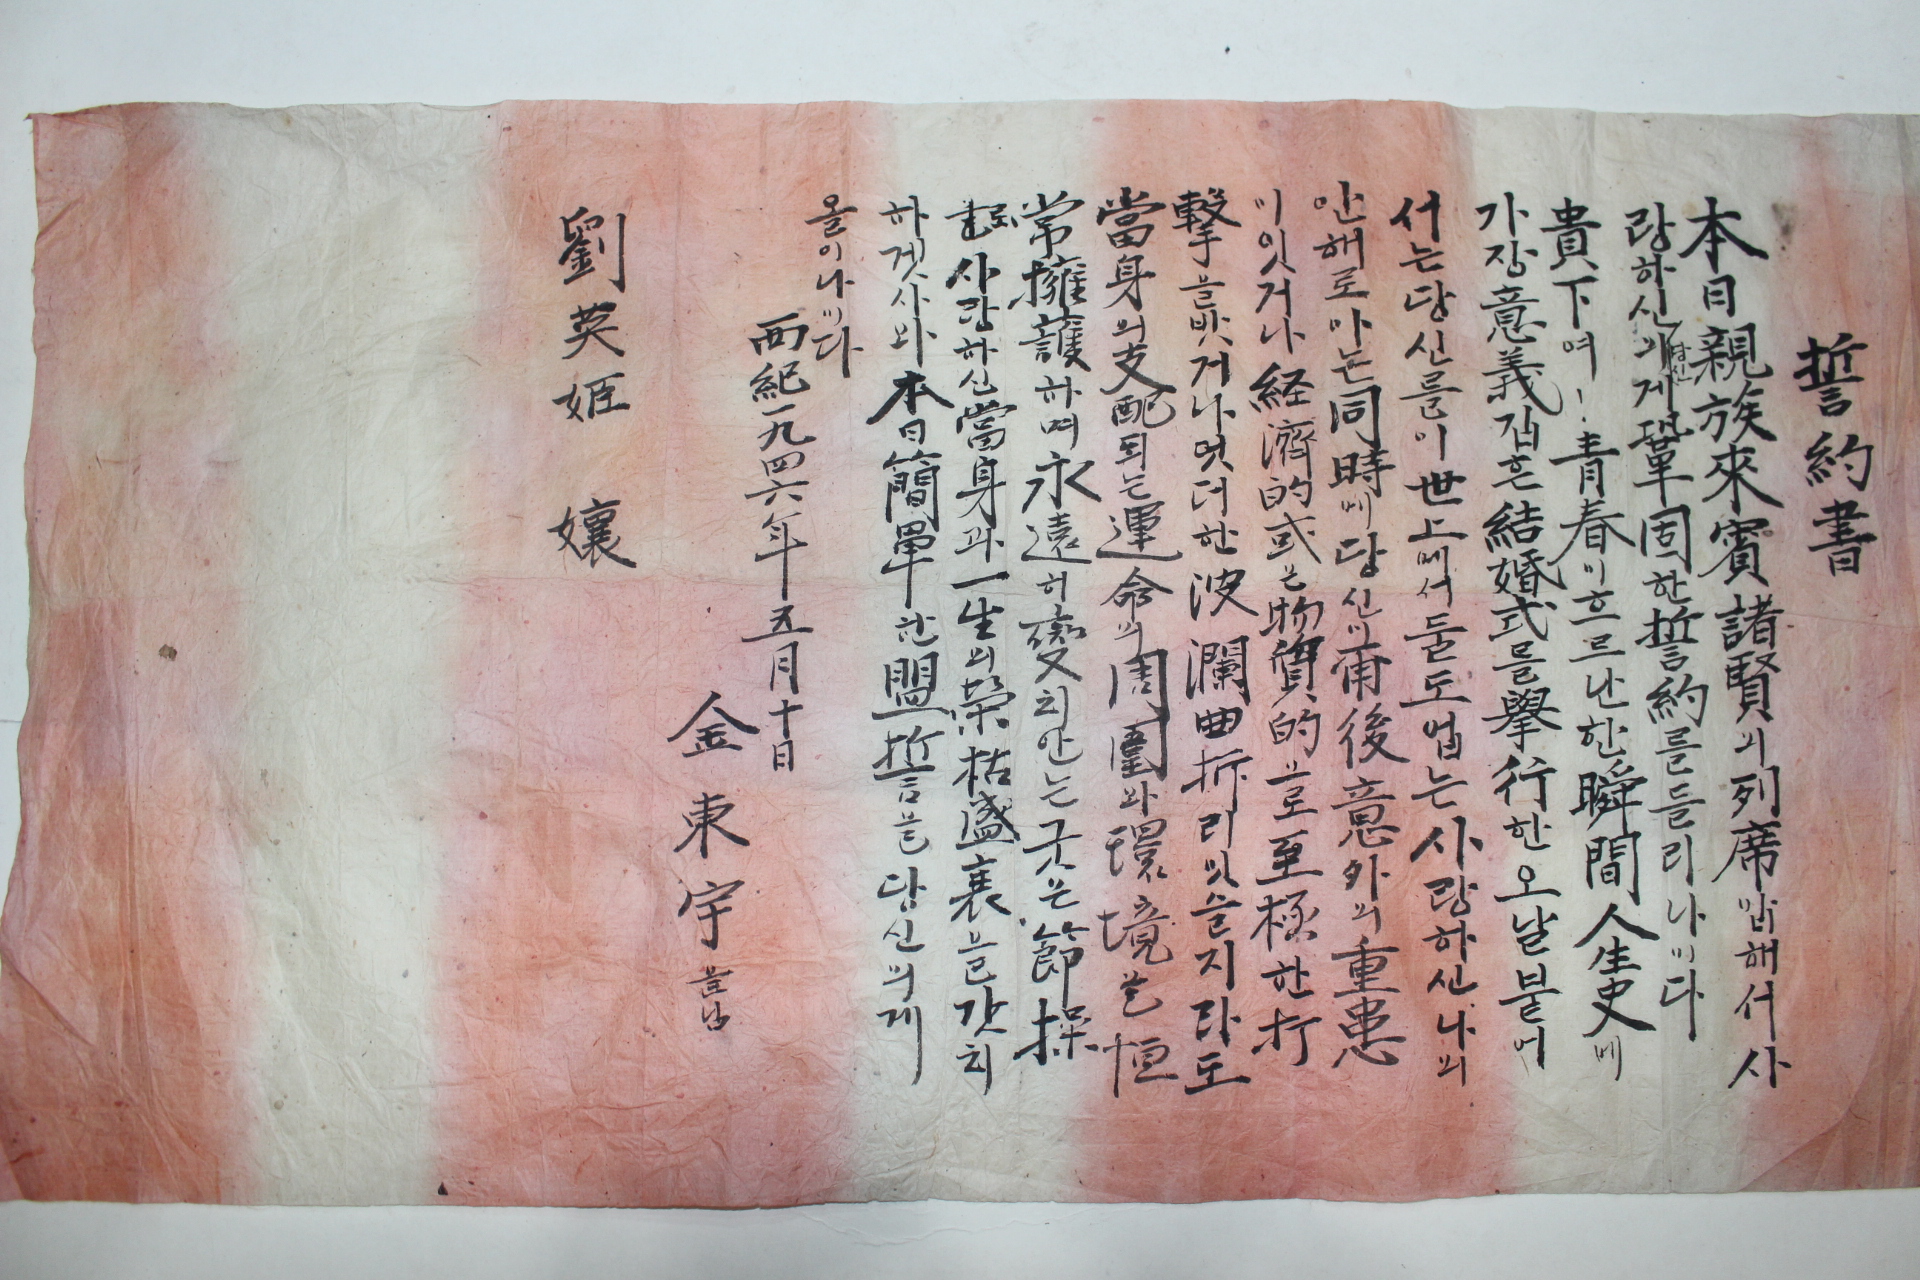 誓約書
本日親族來賓諸賢의列席맙해서사
랑하신의게鞏固한誓約를들리나이다
당신
貴下여!靑春이흐르난한瞬間人生史에
가장意義깁흔結婚式를擧行한오날붙어
서는당신를이世上에서둘도업는사랑하신나의
안해로마는同時에당신의前後意外의重患
이잇거나経濟的或은物質的으로至極한打
擊을밧거나엇더한波瀾曲折리잇슬지라도
當身의支配되는運命의周圍와環境을恒
常擁護하며永遠히變치안는굿은節操
로사랑하신當身과一生의榮枯盛衰을갓치
하겟사와本日簡單한盟誓을당신의게
올이나이다
西紀一九四六年五月十日
金東宇 올님
劉英姬 孃